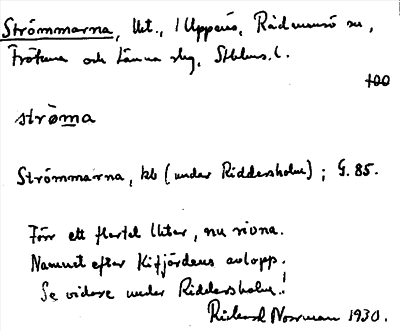 Strömmarna, Utt., i Uppeuö, Rådmansö sn,
Frötuna och Länna slg, Sthlms l.
100
ströma
Strömmarna, kb (under Riddersholm); G. 85.
Förr ett flertal Utter, nu rivna.
Namnet efter Kifjärdens avlopp.
Se vidare under Riddersholm!
Rickard Norrman 1930.